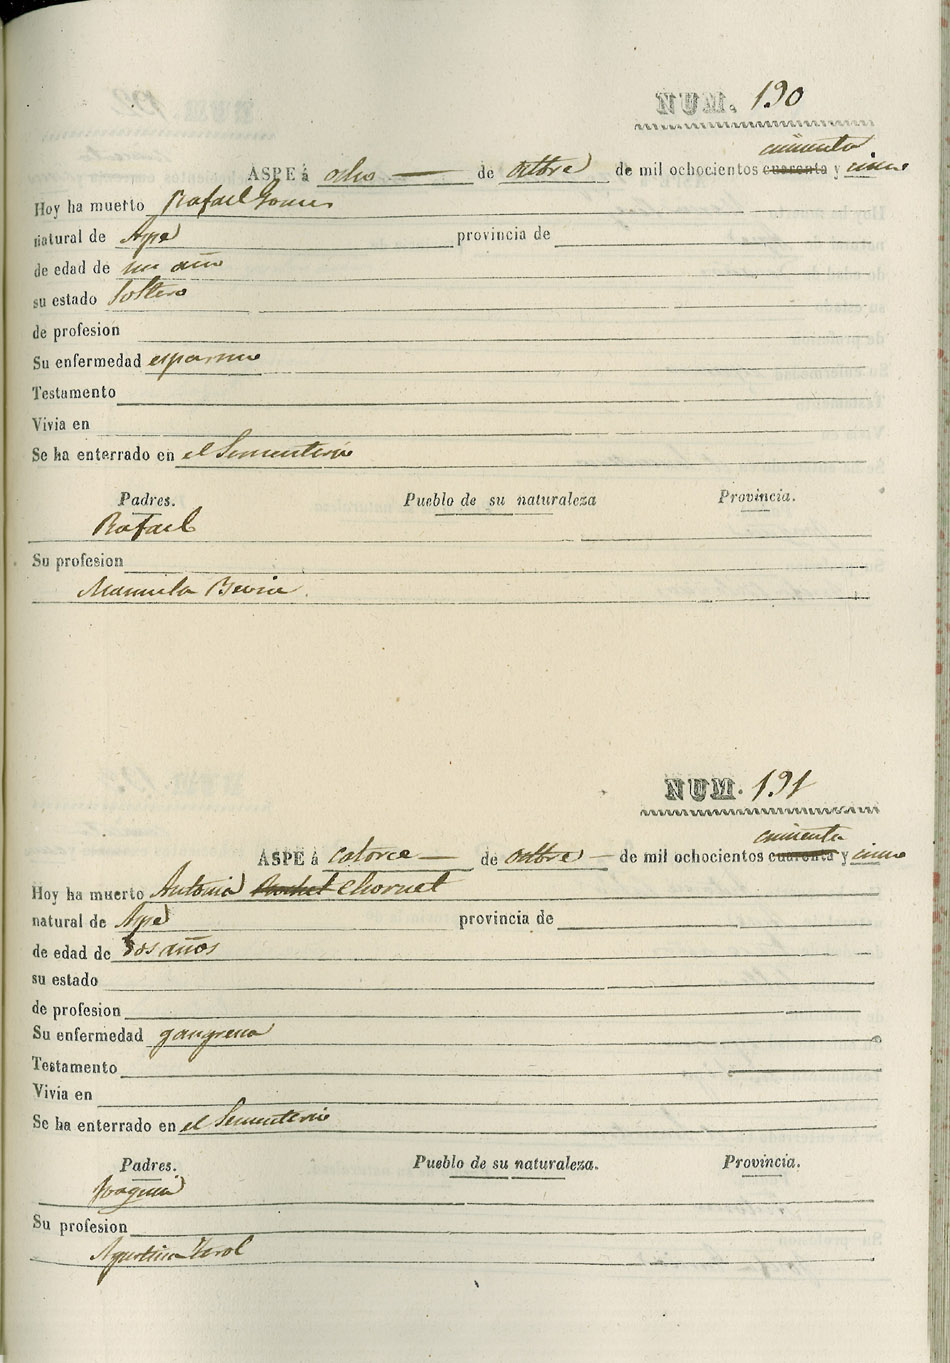 NUM. 190
cincuenta
ASPE á ocho de octbre de mil ochocientos cuarenta y cinco
Hoy ha muerto Rafael Gomes
natural de Aspe provincia de
de edad de un año
su estado Soltero
de profesion
Su enfermedad espasmo
Testamento
Vivia en
Se ha enterrado en el Sementerio
Padres. Pueblo de su naturaleza Provincia.
Rafael
Su profesion
Manuela Bevia
NUM. 191
cincuenta
ASPE á catorce de octbre de mil ochocientos cuarenta y cinco
Hoy ha muerto Antonia Chornet
natural de Aspe provincia de
de edad de dos años
su estado
de profesion
Su enfermedad gangrena
Testamento
Vivia en
Se ha enterrado en el Sementerio
Padres. Pueblo de su naturaleza. Provincia.
Joaquin
Su profesion
Agustina Terol